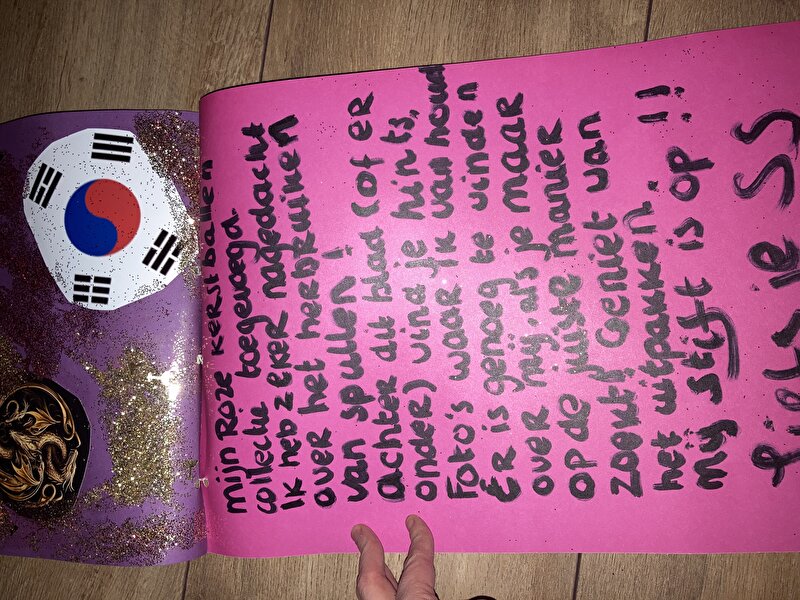 mijn Roze kerst ballen
collectie toegevoegd
Ik heb zeker nagedacht
over het herbruiken
van spullen!
achter dit blad (of er
onder) vind je hints,
Foto's waar ik van houd
Er is genoeg te vinden
over mij, als je maar
op de juiste manier
zoekt! Geniet van
het uitpakken.
mijn stift is op!!
liefs je SS